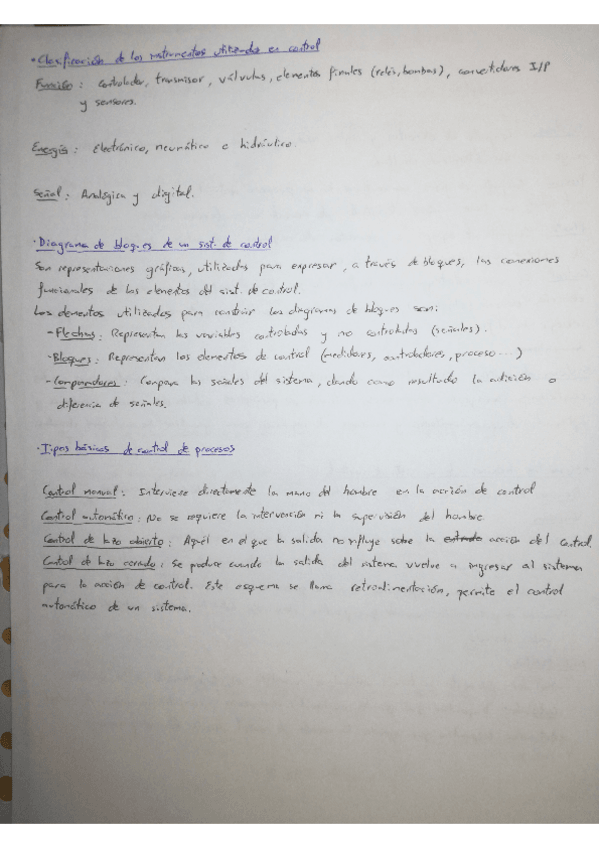 · Clasificación de los instrumentos utilizados en control
Función: Controlador, transmisor, válvulas, elementos finales (relés, bombas), convertidores I/P
y sensores.
Energía: Electrónico, neumático o hidráulico.
Señal: Analógica y digital.
· Diagrama de bloques de un sist. de control
Son representaciones gráficas, utilizadas para expresar, a través de bloques, las conexiones
funcionales de los elementos del sist. de control.
Los elementos utilizados para construir los diagramas de bloques son:
- Flechas: Representan las variables controladas y no controladas (señales).
- Bloques: Representan los elementos de control (medidores, controladores, proceso...)
- Comparadores: Compara las señales del sistema, dando como resultado la adición o
diferencia de señales.
· Tipos básicos de control de procesos
Control manual: Interviene directamente la mano del hombre en la acción de control
Control automático: No se requiere la intervención ni la supervisión del hombre
Control de lazo abierto: Aquél en el que la salida no influye sobre la entrada acción del control.
Control de lazo cerrado: Se produce cuando la salida del sistema vuelve a ingresar al sistema
para la acción de control. Este esquema se llama retroalimentación, permite el control
automático de un sistema.